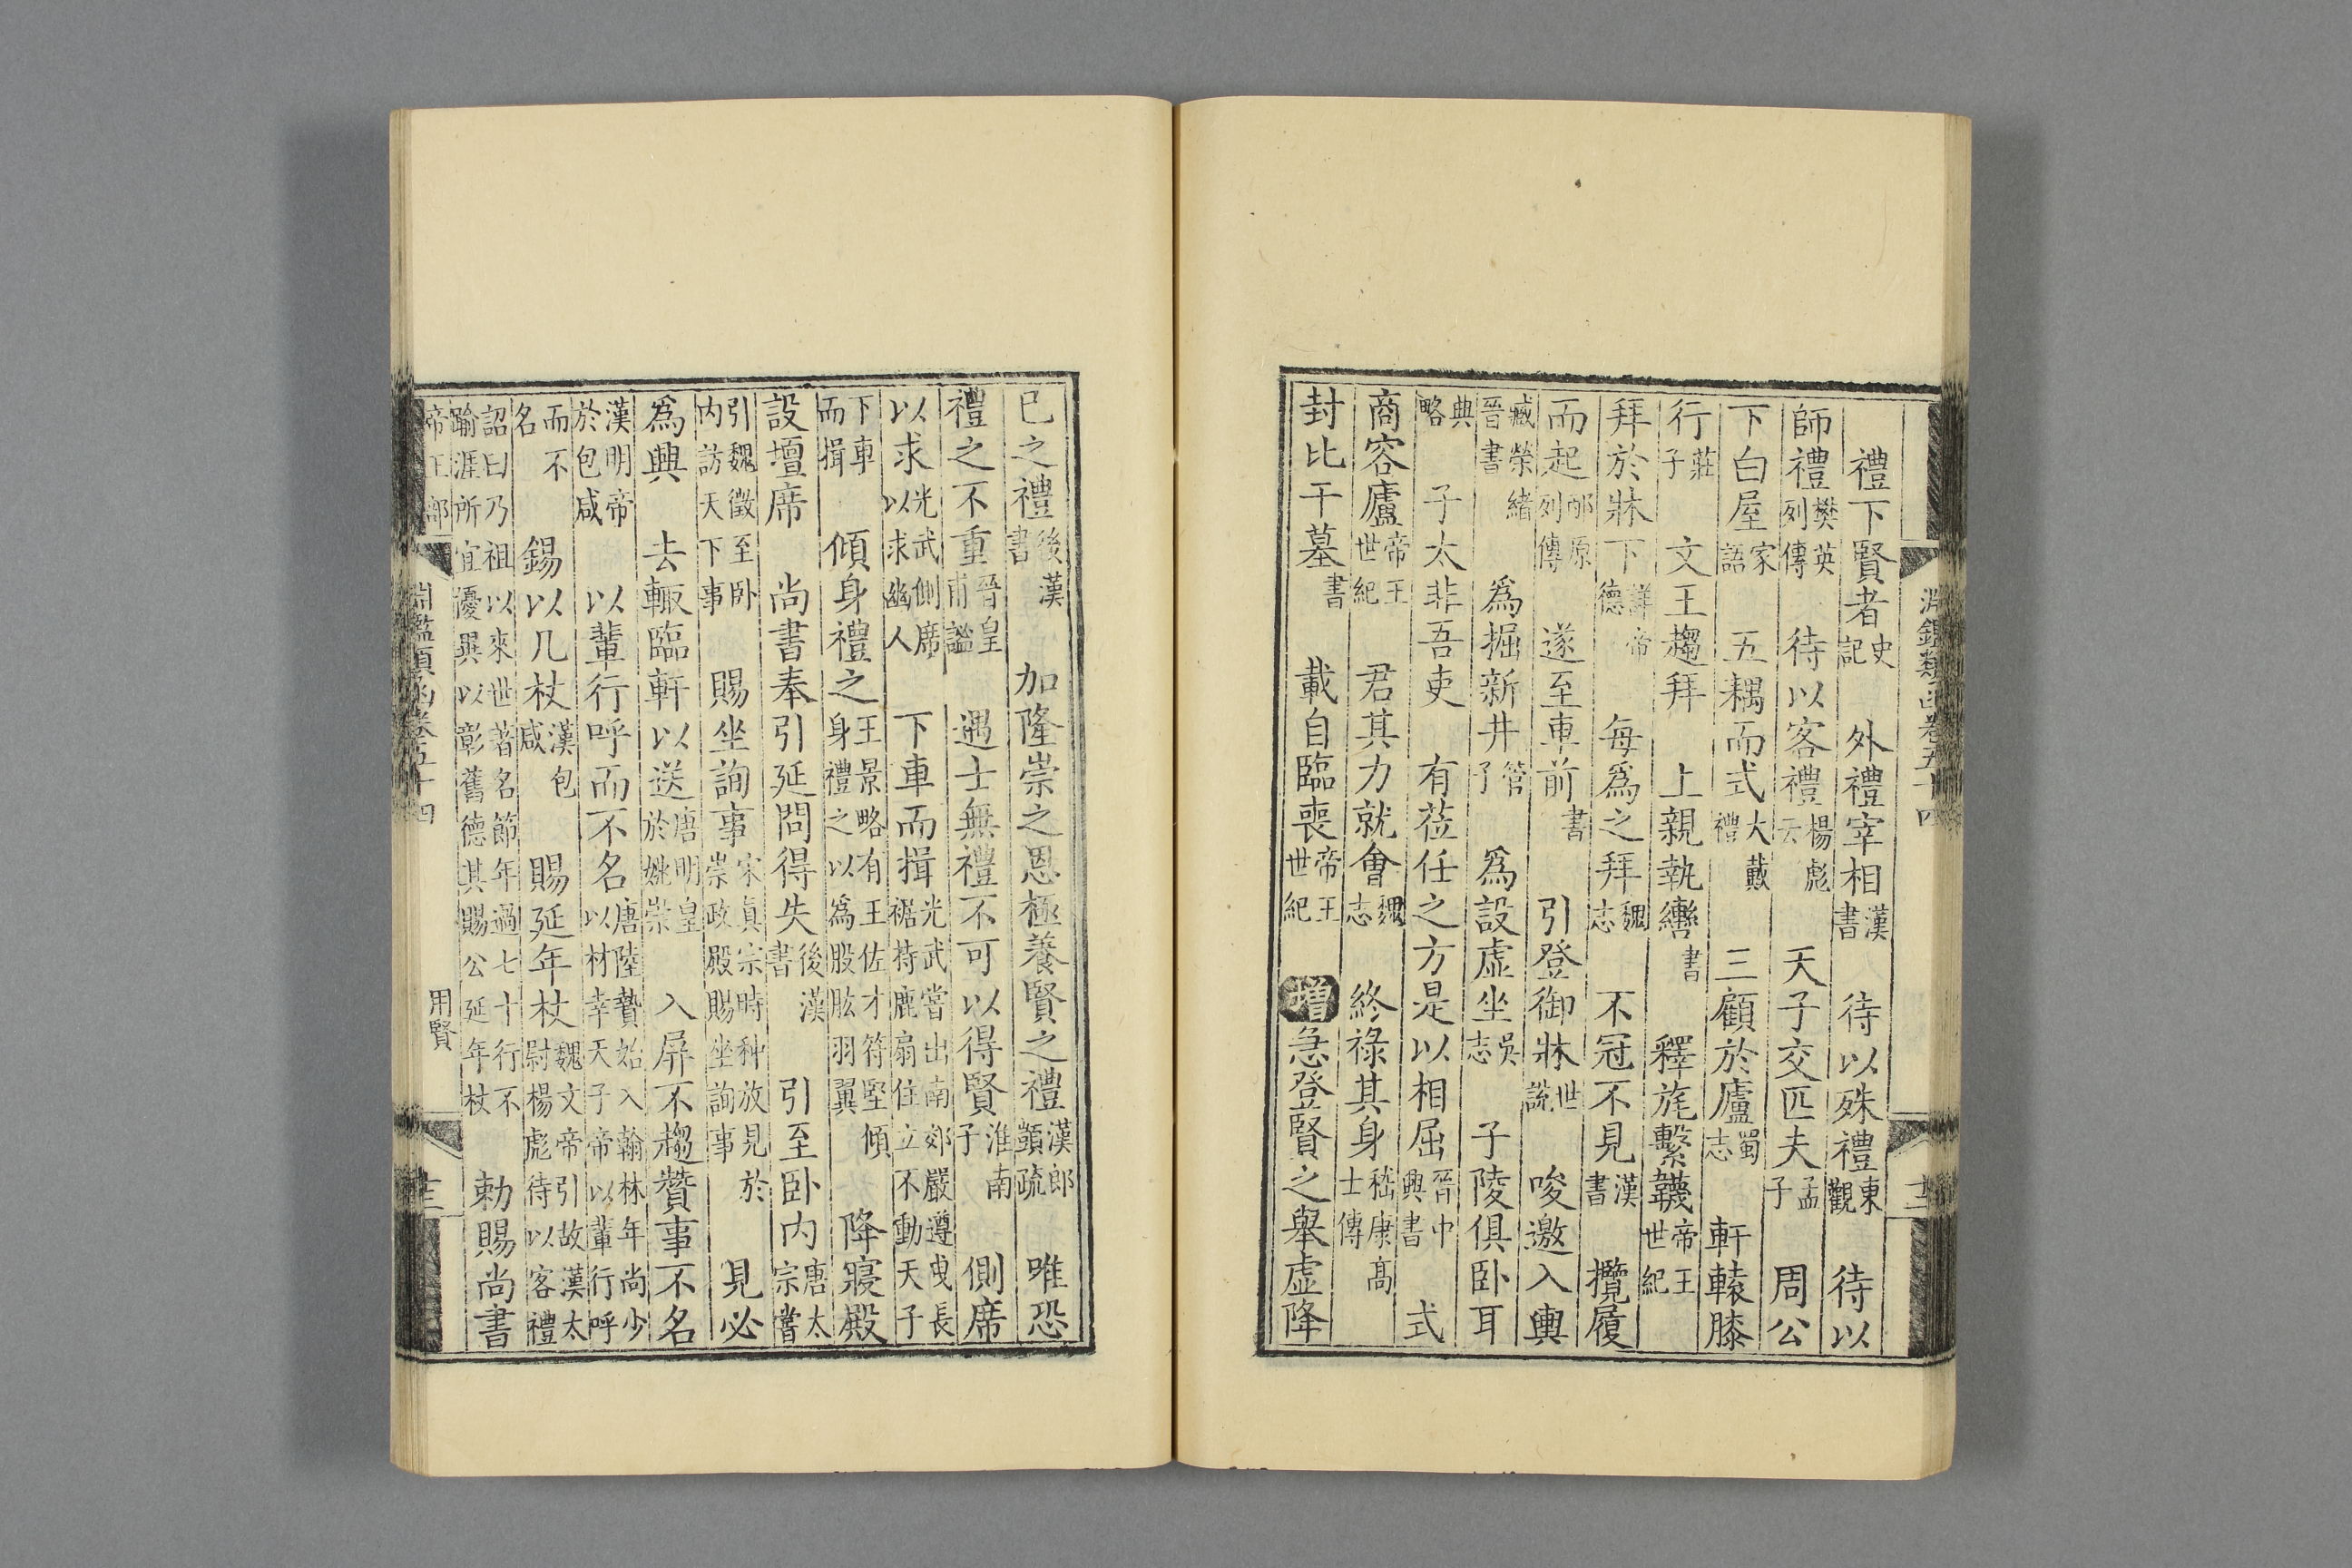 淵鑑類函卷五十四
禮下賢者史記 外禮宰相漢書 待以殊禮東觀 待以
師禮樊英列傳 待以客禮楊彪云 天子交匹夫孟子 周公
下白屋家語 五耦而式大戴禮 三顧於廬蜀志 軒轅膝
行莊子 文王趨拜 上親執轡書 釋旄繫韈帝王世紀
拜於牀下詳帝德 每爲之拜魏志 不冠不見漢書 攬履
而起邴原列傳 遂至車前書 引登御牀世說 唆邀入輿
臧榮緒晉書 爲掘新井管子 爲設虛坐吳志 子陵俱卧耳
典略 子太非吾吏 有莅任之方是以相屈晉中興書 式
商容廬帝王世紀 君其力就會魏志 終祿其身嵇康高士傳
封比干墓書 載自臨喪帝王世紀 增急登賢之舉虛降
已之禮後漢書 加隆崇之恩極養賢之禮漢郎顗疏 唯恐
禮之不重晉皇甫謐 遇士無禮不可以得賢淮南子 側席
以求光武側席以求幽人 下車而揖光武嘗出南郊嚴遵曵長裾持鹿扇住立不動天子
下車而揖 傾身禮之王景略有王佐才符堅傾身禮之以爲股肱羽翼 降寢殿
設壇席 尚書奉引延問得失後漢書 引至卧內唐太宗嘗
引魏徵至卧内訪天下事 賜坐詢事宋真宗時种放見於崇政殿賜坐詢事 見必
爲興 去輙臨軒以送唐明皇於姚崇 入屏不趨贊事不名
漢明帝於包咸 以輩行呼而不名唐陸贄始入翰林年尚少以材幸天子帝以輩行呼
而不名 錫以几杖漢包咸 賜延年杖魏文帝引故漢太尉楊彪待以客禮
詔曰乃祖以來世著名節年過七十行不踰涯所宜優異以彰舊德其賜公延年杖 勅賜尚書
淵鑑類函卷五十四 用賢